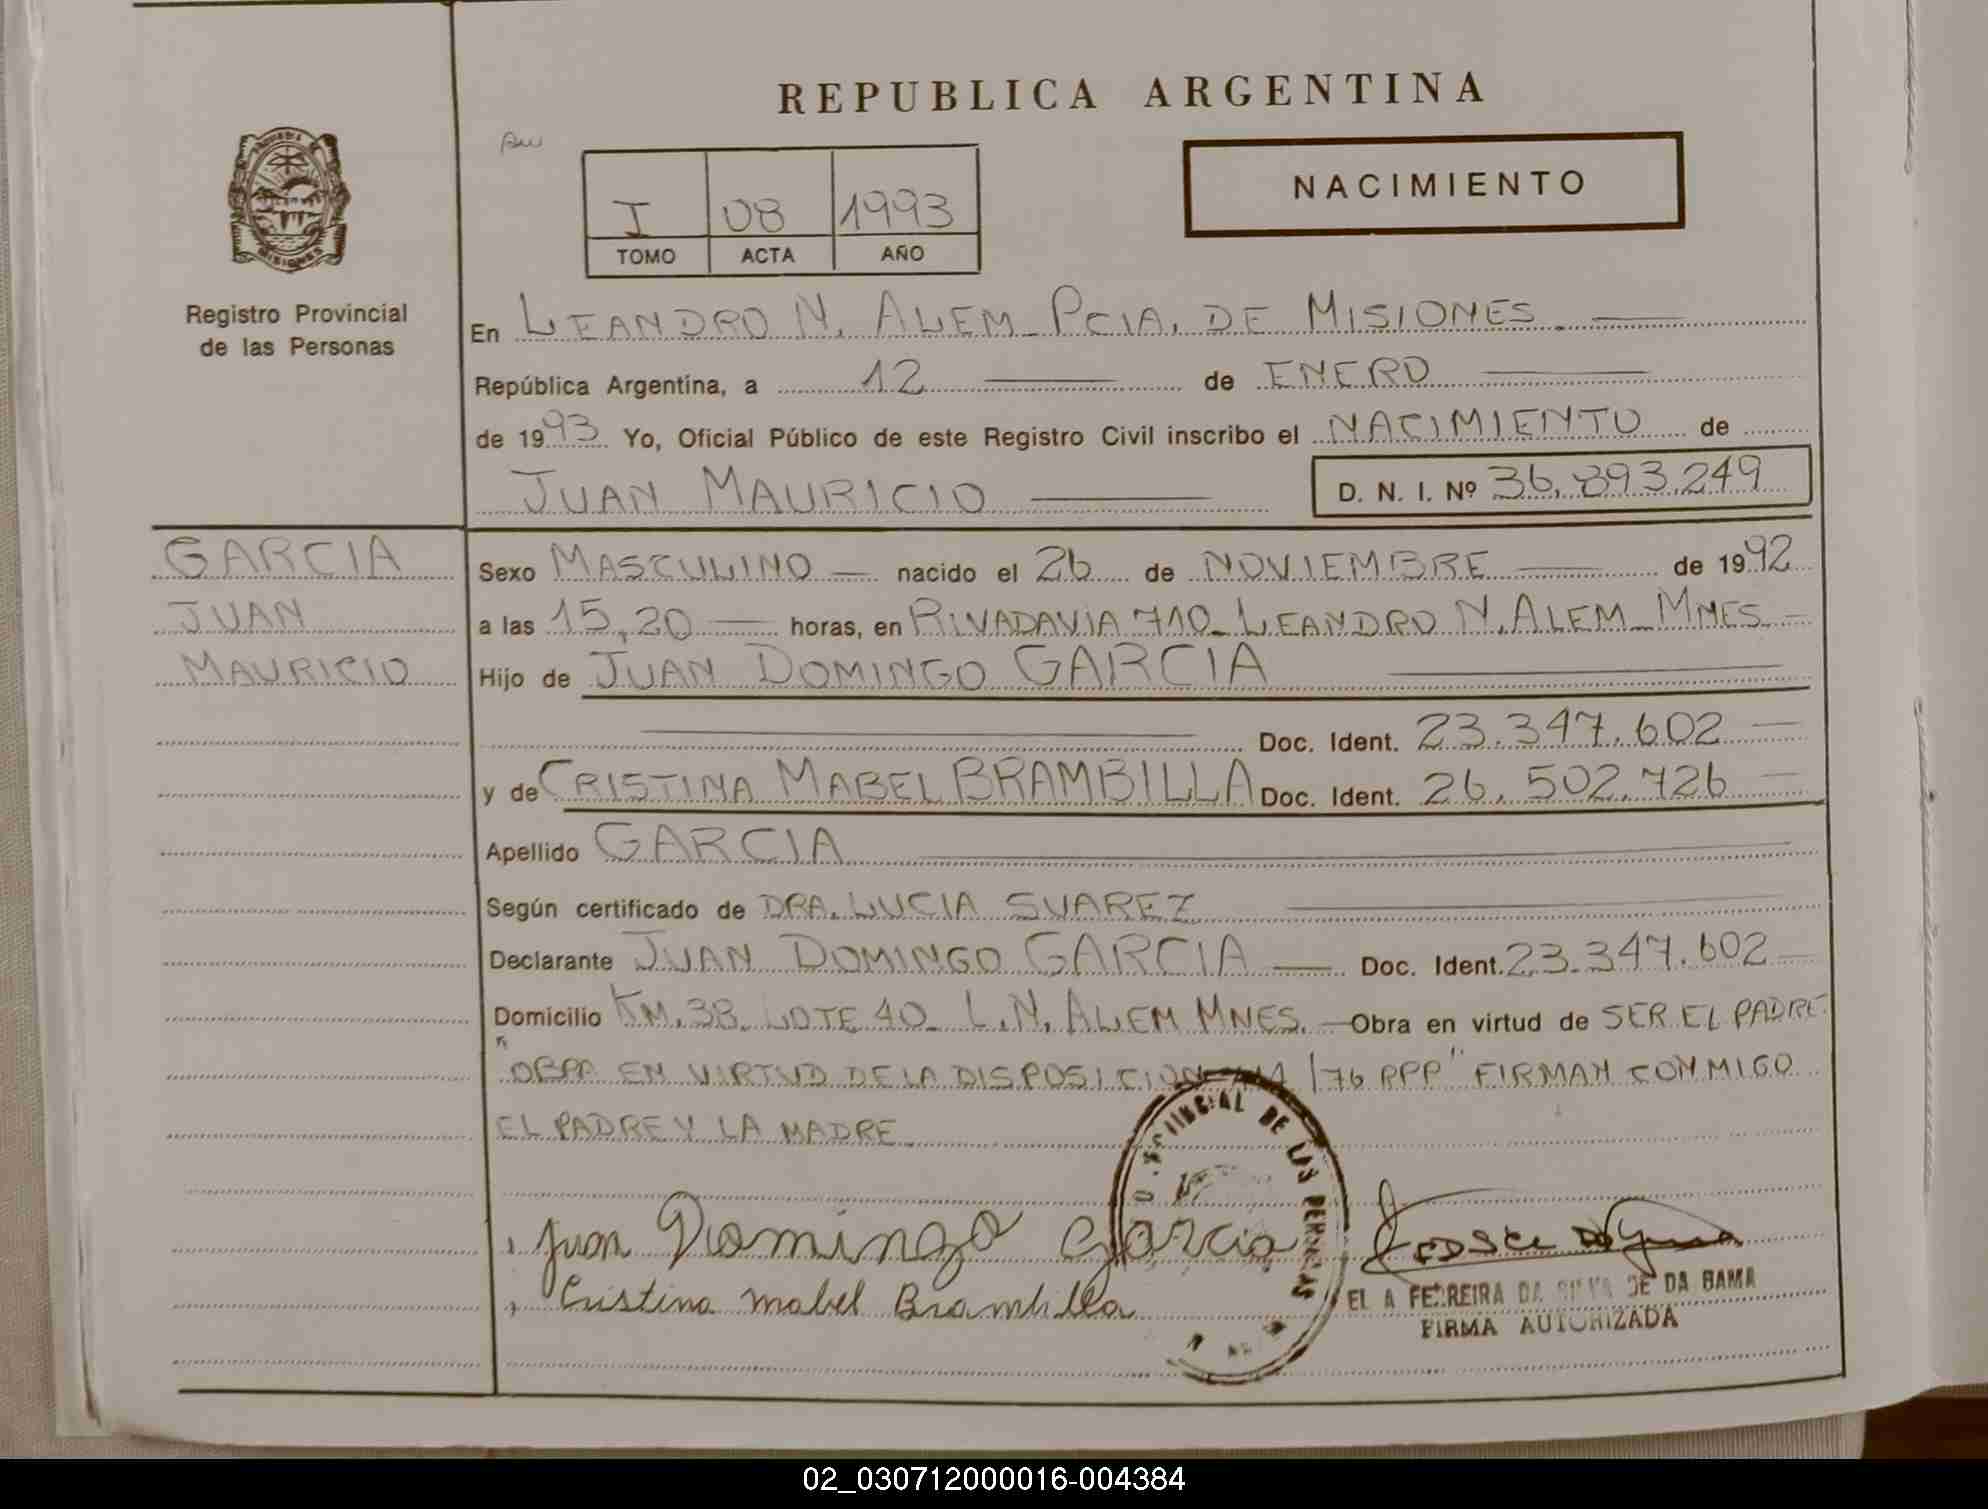 REPUBLICA ARGENTINA
NACIMIENTO
I 08 1993
TOMO ACTA AÑO
MISIONES
Registro Provincial
de las Personas
En LEANDRO N. ALEM PCIA. DE MISIONES.
República Argentina, a 12 de ENERO
de 1993 Yo, Oficial Público de este Registro Civil inscribo el NACIMIENTO de
JUAN MAURICIO D. N. I. Nº 36.893.249
GARCIA
JUAN
MAURICIO
Sexo MASCULINO nacido el 26 de NOVIEMBRE de 1992
a las 15,20 horas, en RIVADAVIA 710 LEANDRO N. ALEM MNES.
Hijo de JUAN DOMINGO GARCIA
Doc. Ident. 23.347.602
y de CRISTINA MABEL BRAMBILLA Doc. Ident. 26.502.726
Apellido GARCIA
Según certificado de DRA. LUCIA SUAREZ
Declarante JUAN DOMINGO GARCIA Doc. Ident. 23.347.602
Domicilio KM. 38 LOTE 40 L.N. ALEM MNES. Obra en virtud de SER EL PADRE.
"OBRA EN VIRTUD DE LA DISPOSICION /76 RPP" FIRMAN CONMIGO
EL PADRE Y LA MADRE
DE LAS
Juan Domingo Garcia
Cristina Mabel Brambilla
A FERREIRA DA SILVA DE DA GAMA
FIRMA AUTORIZADA
02_030712000016-004384